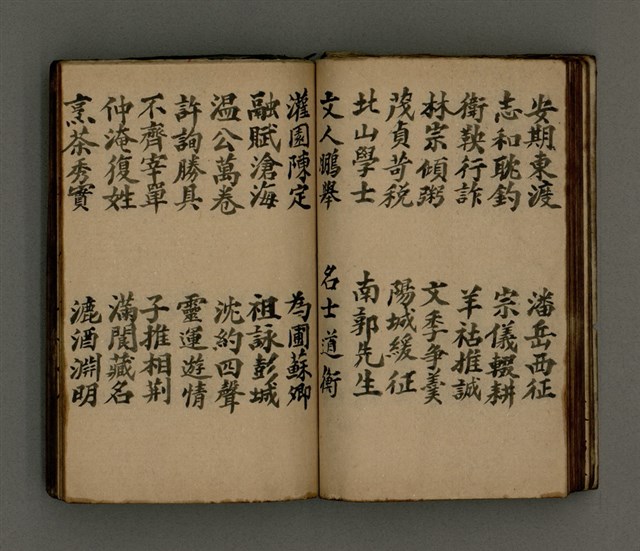 安期東渡 潘岳西征
志和耽釣 宗儀輟耕
衛鞅行詐 羊祜推誠
林宗傾粥 文季爭羹
茂貞苛税 陽城緩征
北山學士 南郭先生
文人鵬舉 名士道衡
灌園陳定 為圃蘇卿
融賦滄海 祖詠彭城
温公萬卷 沈約四聲
許詢勝具 靈運遊情
不齊宰單 子推相荆
仲淹復姓 潘閬藏名
烹茶秀實 漉酒淵明